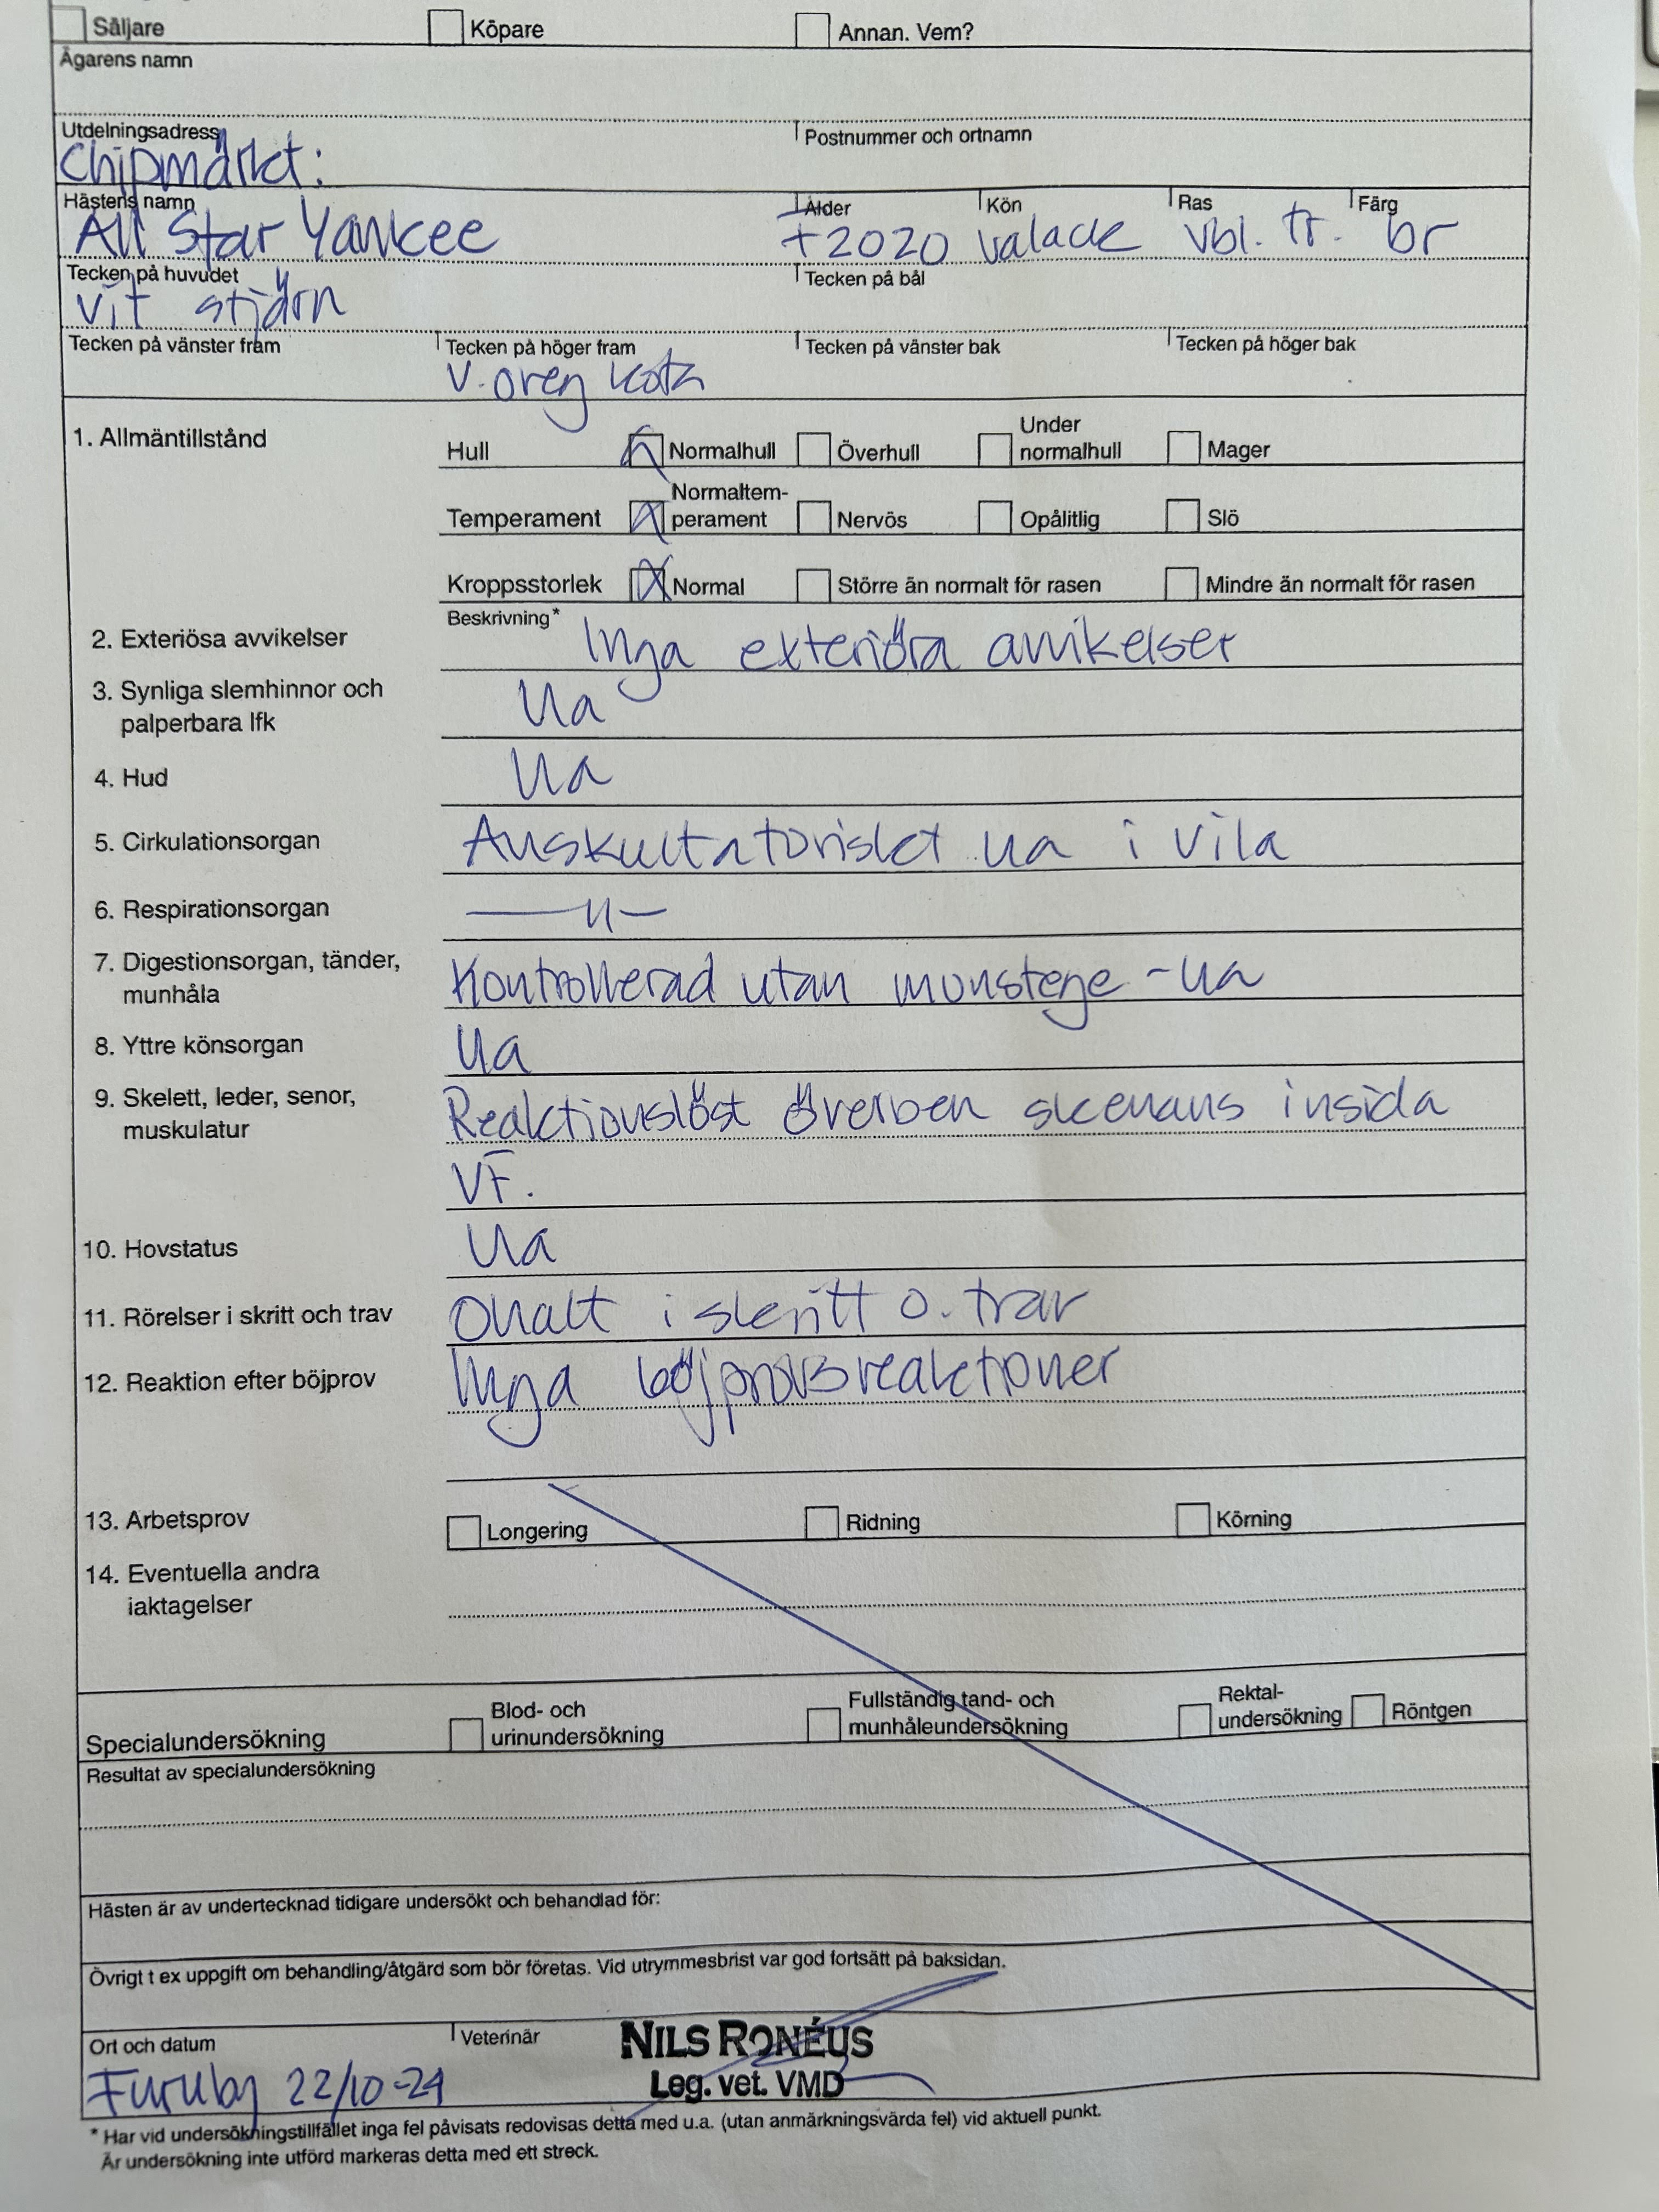 Säljare Köpare Annan. Vem?
Ägarens namn
Utdelningsadress Postnummer och ortnamn
Chipmärkt:
Hästens namn Ålder Kön Ras Färg
All Star Yankee f 2020 valack vbl. tr. br
Tecken på huvudet Tecken på bål
Vit stjärn
Tecken på vänster fram Tecken på höger fram Tecken på vänster bak Tecken på höger bak
V. oreg kota
1. Allmäntillstånd Hull Normalhull Överhull Under normalhull Mager
Temperament Normaltem-
perament Nervös Opålitlig Slö
Kroppsstorlek Normal Större än normalt för rasen Mindre än normalt för rasen
Beskrivning*
2. Exteriösa avvikelser Inga exteriöra avvikelser
3. Synliga slemhinnor och
palperbara lfk Ua
4. Hud Ua
5. Cirkulationsorgan Auskultatoriskt ua i vila
6. Respirationsorgan —"—
7. Digestionsorgan, tänder,
munhåla Kontrollerad utan munstege - ua
8. Yttre könsorgan Ua
9. Skelett, leder, senor,
muskulatur Reaktionslöst överben skenans insida
VF.
10. Hovstatus Ua
11. Rörelser i skritt och trav Ohalt i skritt o. trav
12. Reaktion efter böjprov Inga böjprovsreaktioner
13. Arbetsprov Longering Ridning Körning
14. Eventuella andra
iaktagelser
Specialundersökning Blod- och
urinundersökning Fullständig tand- och
munhåleundersökning Rektal-
undersökning Röntgen
Resultat av specialundersökning
Hästen är av undertecknad tidigare undersökt och behandlad för:
Övrigt t ex uppgift om behandling/åtgärd som bör företas. Vid utrymmesbrist var god fortsätt på baksidan.
Ort och datum Veterinär
NILS RONÉUS
Furuby 22/10-24 Leg. vet. VMD
* Har vid undersökningstillfället inga fel påvisats redovisas detta med u.a. (utan anmärkningsvärda fel) vid aktuell punkt.
Är undersökning inte utförd markeras detta med ett streck.